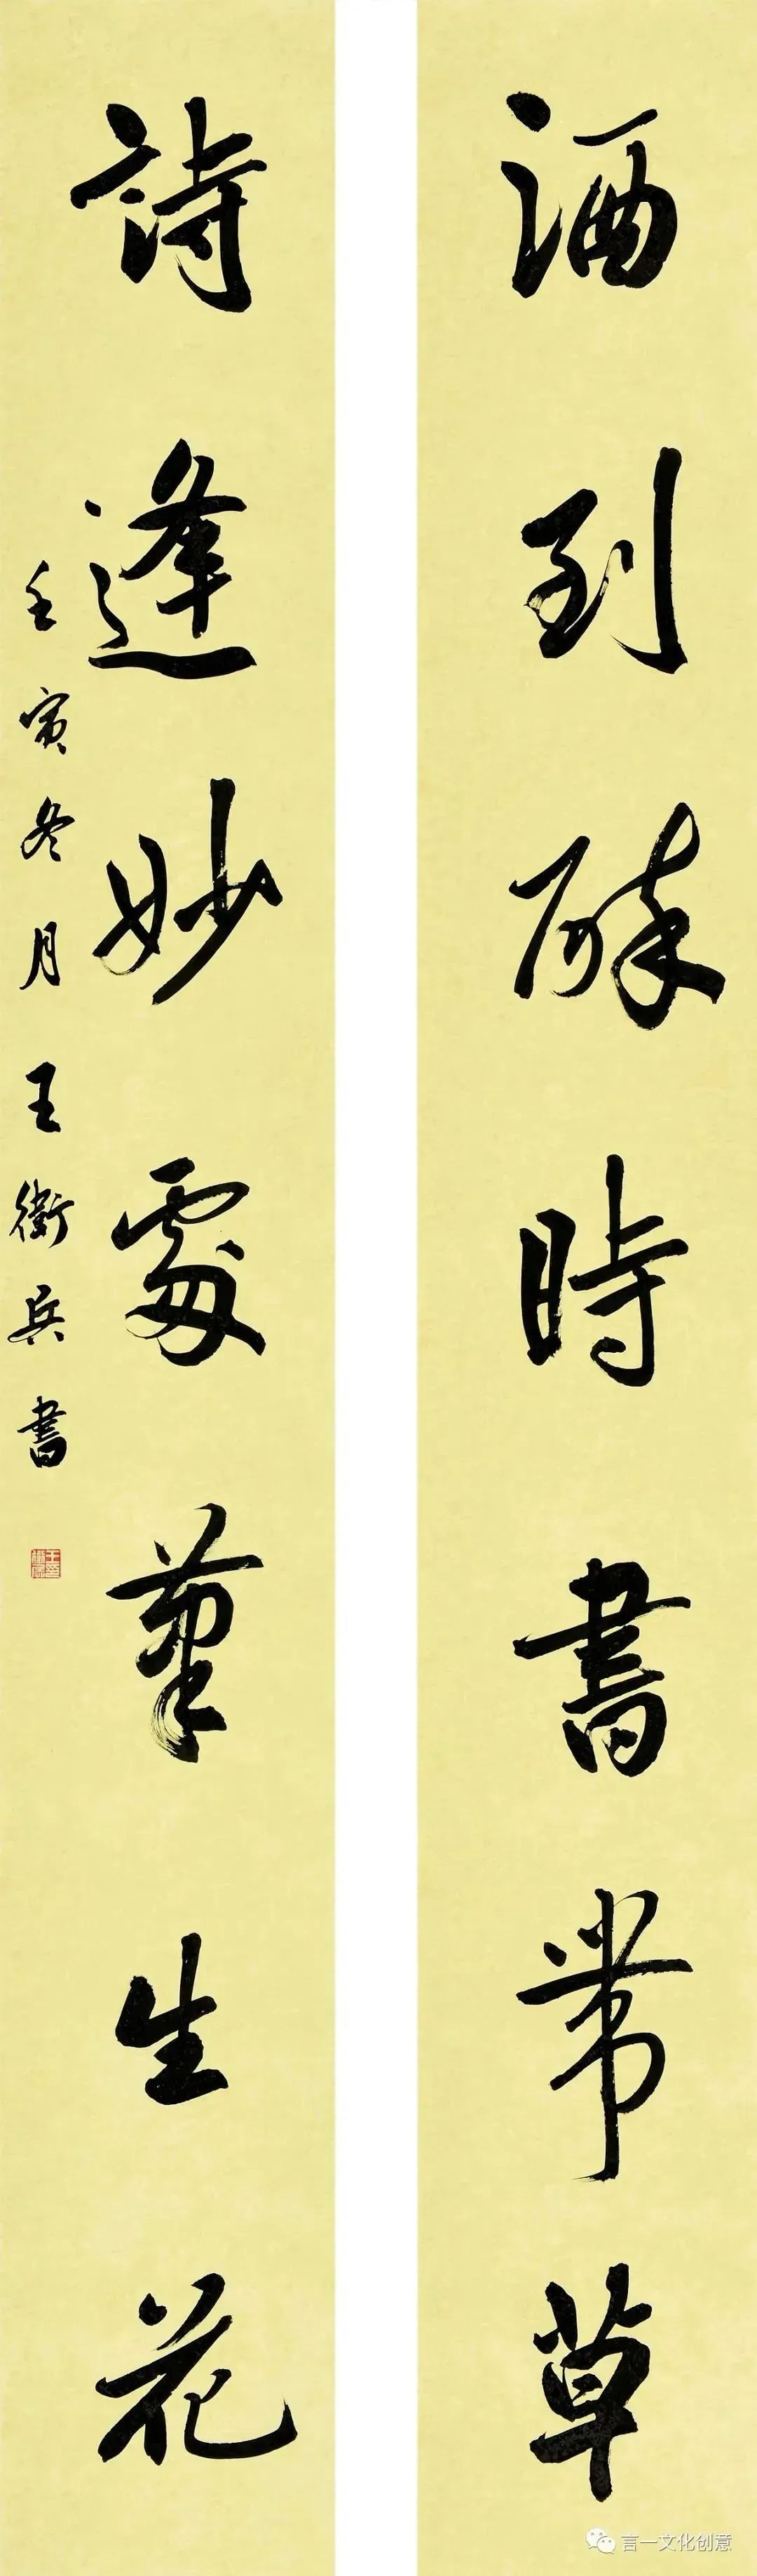 酒到醉時書常草
詩逢妙處筆生花
壬寅冬月王衛兵書
言一文化创意